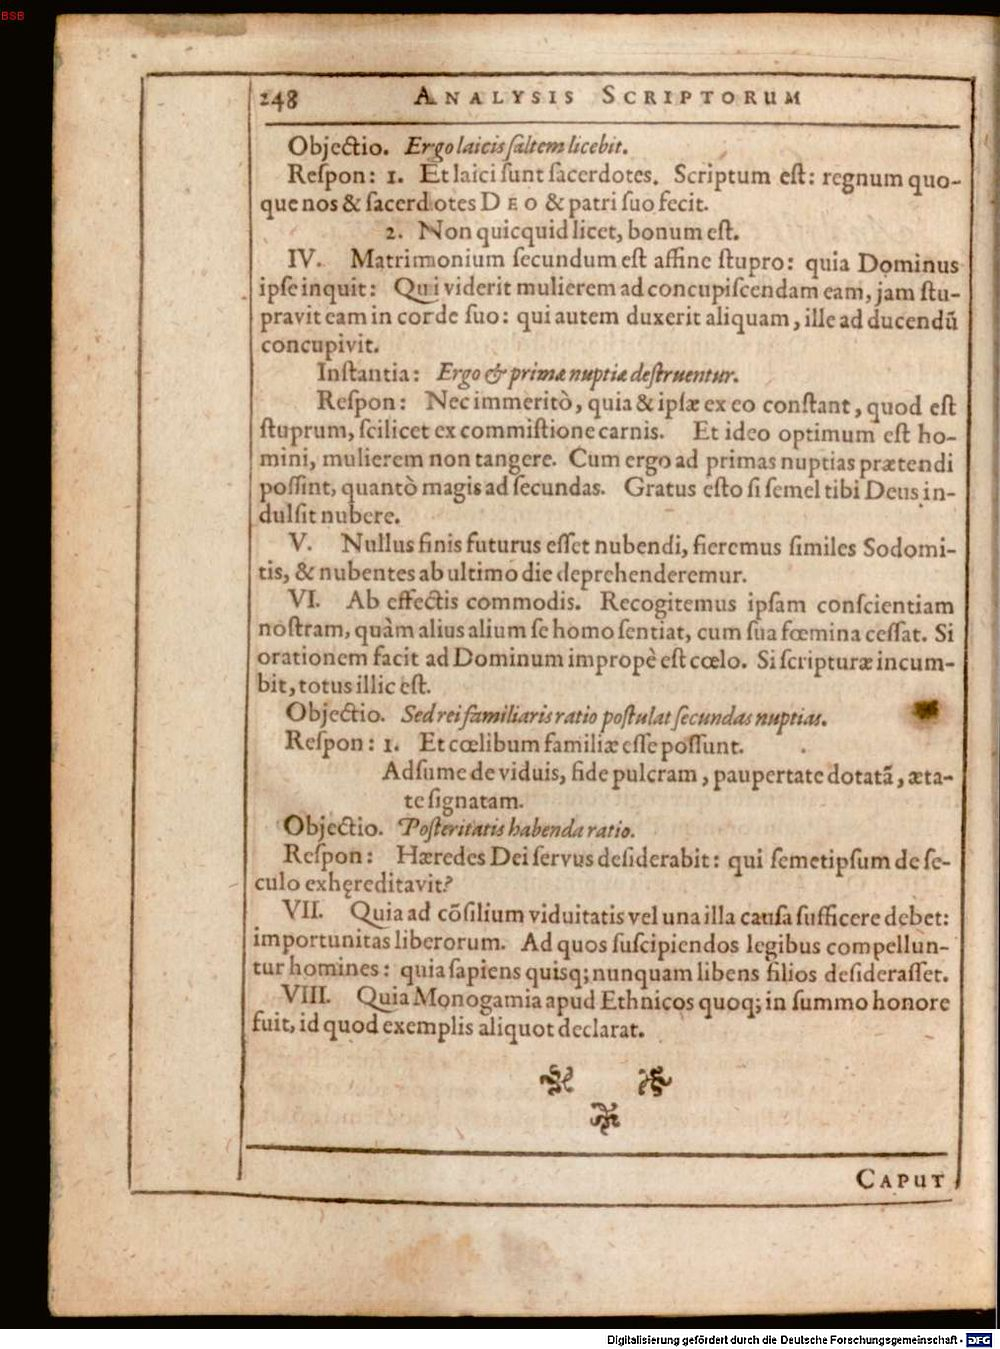 BSB
248 ANALYSIS SCRIPTORUM
Objectio. Ergo laicis ſaltem licebit.
Reſpon: 1. Et laici ſunt ſacerdotes. Scriptum eſt: regnum quo-
que nos & ſacerdotes DEO & patri ſuo fecit.
2. Non quicquid licet, bonum eſt.
IV. Matrimonium ſecundum eſt affine ſtupro: quia Dominus
ipſe inquit: Qui viderit mulierem ad concupiſcendam eam, jam ſtu-
pravit eam in corde ſuo: qui autem duxerit aliquam, ille ad ducendũ
concupivit.
Inſtantia: Ergo & primæ nuptiæ deſtruentur.
Reſpon: Nec immeritò, quia & ipſæ ex eo conſtant, quod eſt
ſtuprum, ſcilicet ex commiſtione carnis. Et ideo optimum eſt ho-
mini, mulierem non tangere. Cum ergo ad primas nuptias prætendi
poſſint, quantò magis ad ſecundas. Gratus eſto ſi ſemel tibi Deus in-
dulſit nubere.
V. Nullus finis futurus eſſet nubendi, fieremus ſimiles Sodomi-
tis, & nubentes ab ultimo die deprehenderemur.
VI. Ab effectis commodis. Recogitemus ipſam conſcientiam
noſtram, quàm alius alium ſe homo ſentiat, cum ſua fœmina ceſſat. Si
orationem facit ad Dominum impropè eſt cœlo. Si ſcripturæ incum-
bit, totus illic eſt.
Objectio. Sed rei familiaris ratio poſtulat ſecundas nuptias.
Reſpon: 1. Et cœlibum familiæ eſſe poſſunt.
Adſume de viduis, fide pulcram, paupertate dotatã, æta-
te ſignatam.
Objectio. Poſteritatis habenda ratio.
Reſpon: Hæredes Dei ſervus deſiderabit: qui ſemetipſum de ſe-
culo exhęreditavit?
VII. Quia ad cõſilium viduitatis vel una illa cauſa ſufficere debet:
importunitas liberorum. Ad quos ſuſcipiendos legibus compellun-
tur homines: quia ſapiens quisq; nunquam libens filios deſideraſſet.
VIII. Quia Monogamia apud Ethnicos quoq; in ſummo honore
fuit, id quod exemplis aliquot declarat.
CAPUT
Digitalisierung gefördert durch die Deutsche Forschungsgemeinschaft - DFG